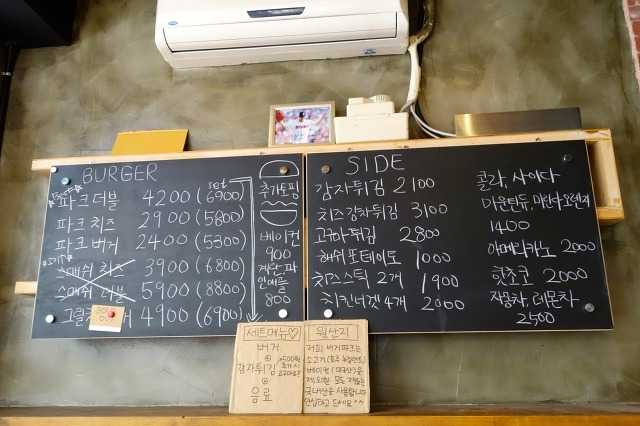 BURGER
set
파크 더블 4200 (6900)
파크 치즈 2900 (5600)
파크 버거 2400 (5300)
스매쉬 치즈 3900 (6800)
스매쉬 더블 5900 (8800)
4900 (6900)
추가토핑
베이컨
900
계란, 파
인애플
800
SIDE
감자튀김 2100
치즈감자튀김 3100
고구마튀김 2800
해쉬포테이토 1000
치즈스틱 2개 1900
치킨너겟 4개 2000
콜라, 사이다
마운틴듀, 미린다오렌지
1400
아메리카노 2000
핫쵸코 2000
자몽차, 레몬차
2500
세트메뉴♡
버거
⊕
감자튀김
⊕
음료
원산지
저희 버거파크는
소고기(호주, 뉴질랜드)
베이컨(